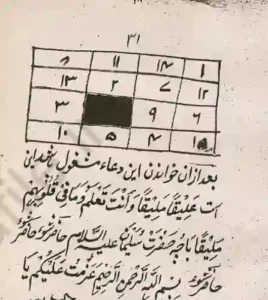 ۳۱
۸ ۱۱ ۱۴ ۱
۱۳ ۲ ۷ ۱۲
۳ ۹ ۶
۱۰ ۵ ۴ ۱۵
بعد ازان خواندن این دعاء مشغول
علیقا ملیقا وانت تعلم وما فی قلوبهم
ملیقا بحق حضرت سلیمان علیه السلام حاضر شو حاضر شو
حاضر شو بسم الله الرحمن الرحیم عزمت علیکم یا